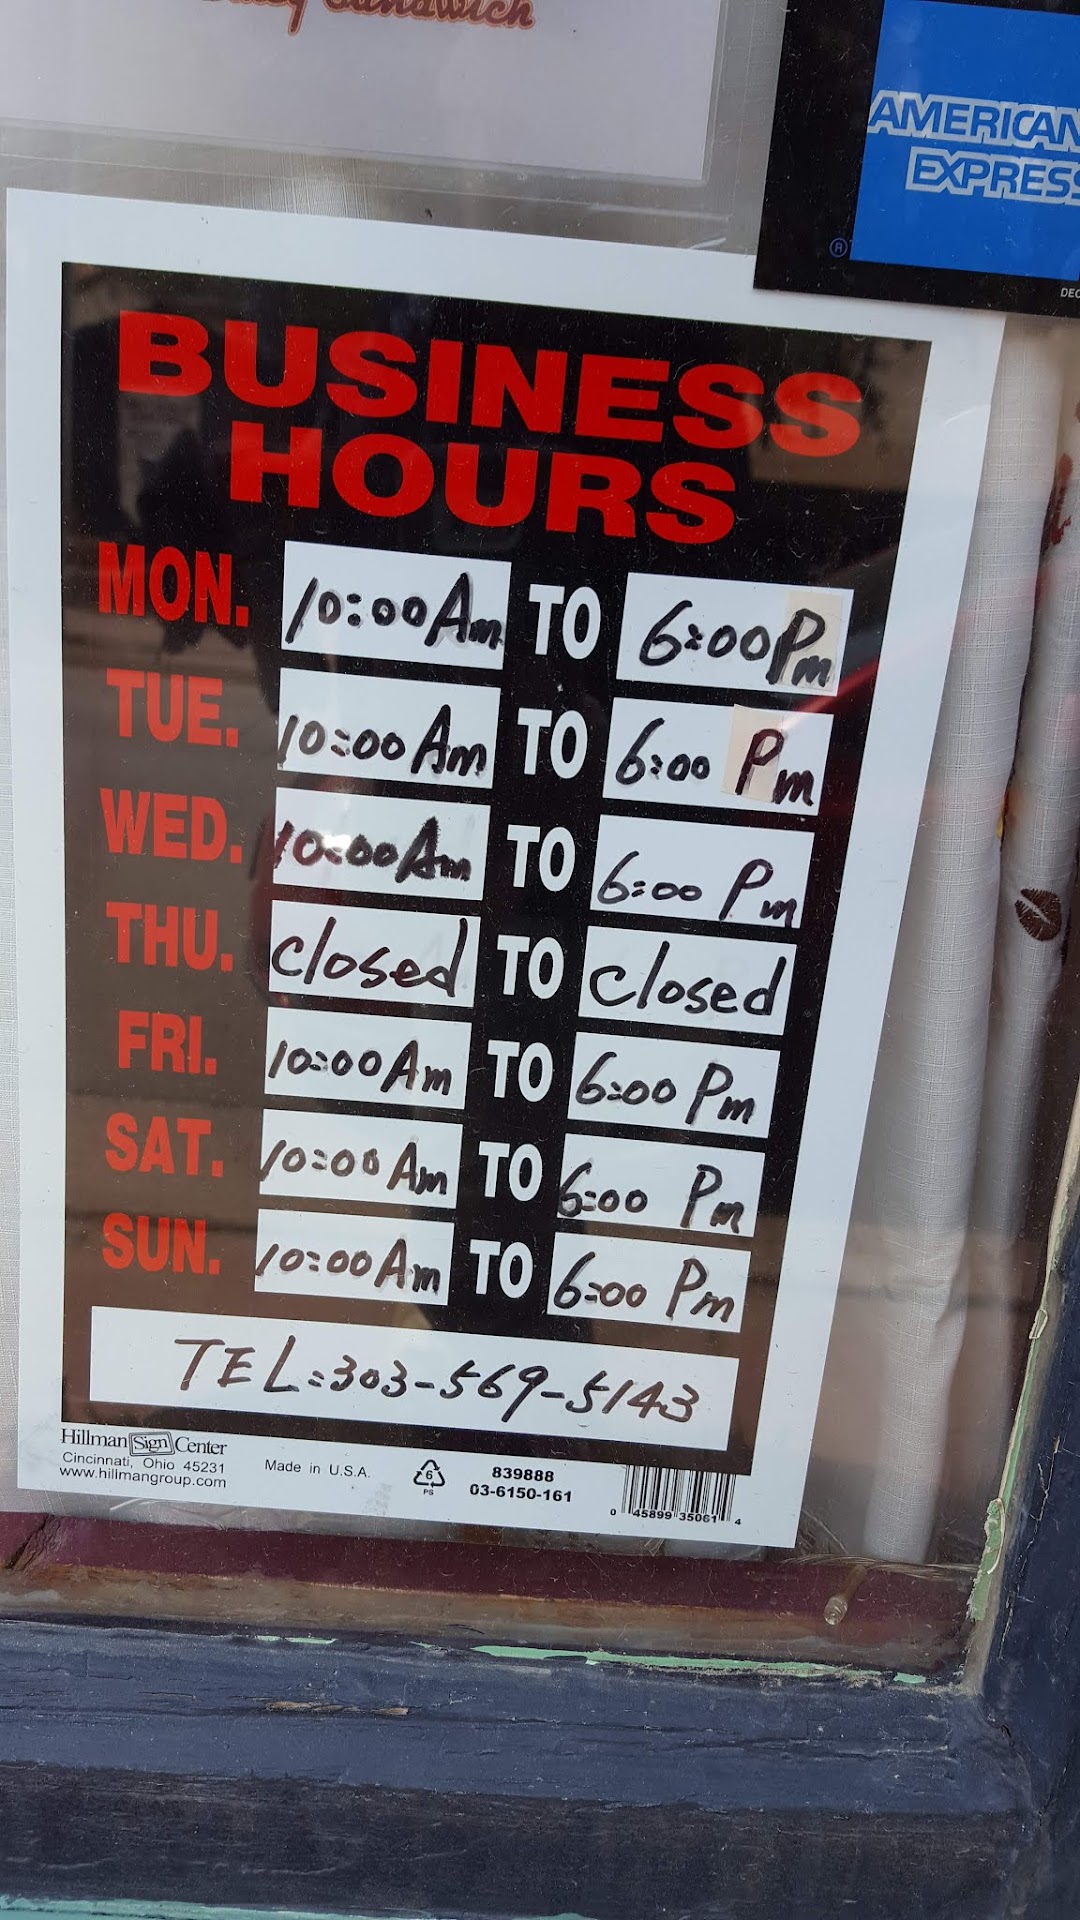 Sandwich
AMERICAN
EXPRESS
®
DEC
BUSINESS
HOURS
MON. 10:00 Am TO 6:00 Pm
TUE. 10:00 Am TO 6:00 Pm
WED. 10:00 Am TO 6:00 Pm
THU. closed TO closed
FRI. 10:00 Am TO 6:00 Pm
SAT. 10:00 Am TO 6:00 Pm
SUN. 10:00 Am TO 6:00 Pm
TEL: 303-569-5143
Hillman Sign Center
Cincinnati, Ohio 45231
www.hillmangroup.com
Made in U.S.A.
6
PS
839888
03-6150-161
0 45899 35061 4